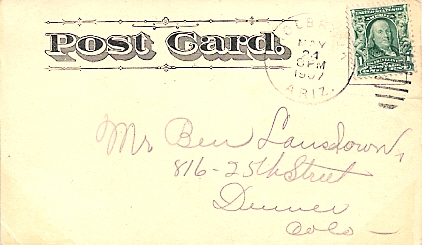 Post Card.
HOLBROOK
MAY
24
6 PM
1907
ARIZ.
1
Mr Ben Lansdown,
816-25th Street
Denver
Colo-